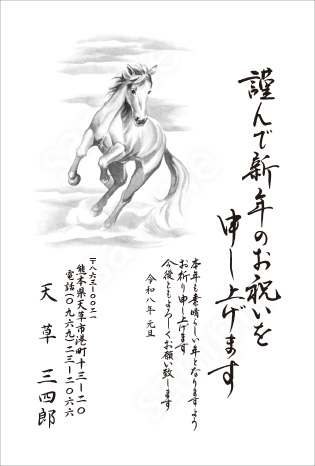 謹んで新年のお祝いを
申し上げます
本年も素晴らしい年となりますよう
お祈り申し上げます
今後ともよろしくお願い致します
令和八年 元旦
〒八六三-〇〇二一
熊本県天草市港町十三-二〇
電話(〇九六九)二三-二〇六六
天草 三四郎